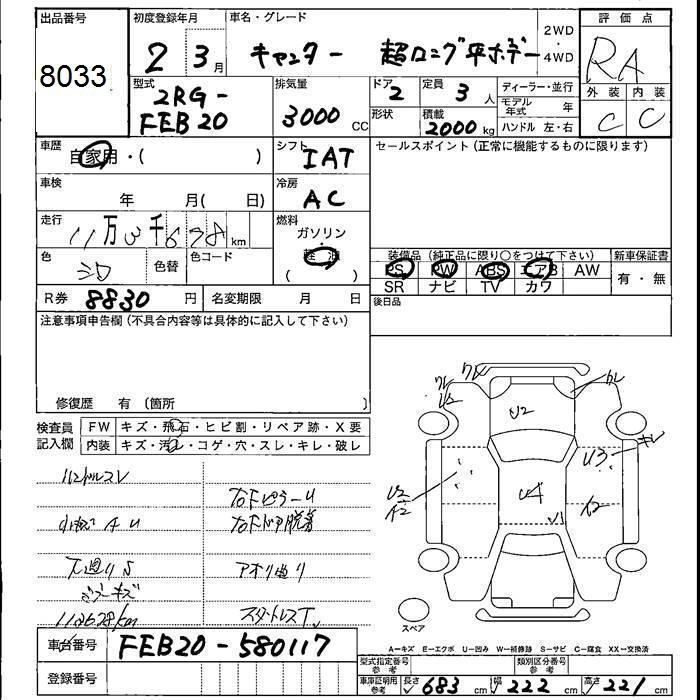 出品番号
8033
初度登録年月
2 3月
車名・グレード
キャンター 超ロング平ボデー
2WD・4WD
評価点
RA
外装 内装
C C
型式
2RG-
FEB20
排気量
3000 CC
ドア
2
定員
3人
形状
積載
2000kg
ディーラー・並行
モデル年式 年
ハンドル 左・右
車歴
自家用・( )
シフト
IAT
セールスポイント(正常に機能するものに限ります)
車検
年 月( 日)
冷房
AC
走行
11万3千678km
燃料
ガソリン
・
軽油
( )
色
シロ
色替
色コード
装備品(純正品に限り○をつけて下さい)
新車保証書
PS PW ABS エアB AW
SR ナビ TV カワ
有・無
R券 8830円
名変期限 月 日
後日品
注意事項申告欄(不具合内容等は具体的に記入して下さい)
修復歴 有(箇所 )
検査員記入欄
FW キズ・飛石・ヒビ割・リペア跡・X要
内装 キズ・汚レ・コゲ・穴・スレ・キレ・破レ
ハンドルスレ
右FピラーU
右Fドア脱着
下廻りS
アオリ廻り
112628km
スタットレスT
ワレ
U2
ワレ
U2
ワレ
U3
キレ
U2
A2
U4
U3
A2
スペア
A-キズ E-エクボ U-凹み W-補修跡 S-サビ C-腐食 XX-交換済
車台番号
FEB20-580117
登録番号
型式指定番号
参考
類別区分番号
参考
車庫証明用
参考
長さ 683cm 幅 222cm 高さ 221cm